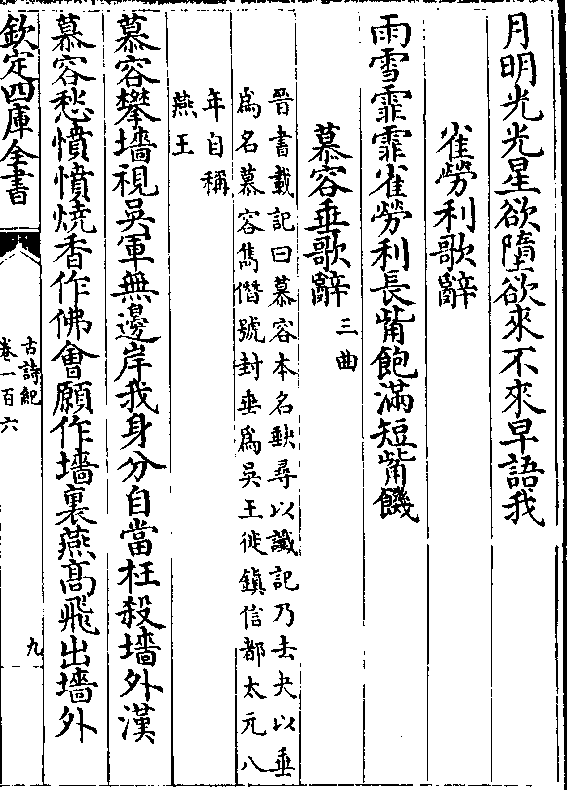 月明光光星欲墮欲來不來早語我
雀勞利歌辭
雨雪霏霏雀勞利長觜飽滿短觜饑
慕容垂歌辭 三曲
晉書載記曰慕容本名𡙇尋以讖記乃去夬以垂
爲名慕容雋僭號封垂爲吳王徙鎮信都太元八
年自稱
燕王
慕容攀墻視吳軍無邊岸我身分自當枉殺墻外漢
慕容愁憤憤燒香作佛會願作墻裏燕高飛出墻外
欽定四庫全書
古詩紀
卷一百六
九